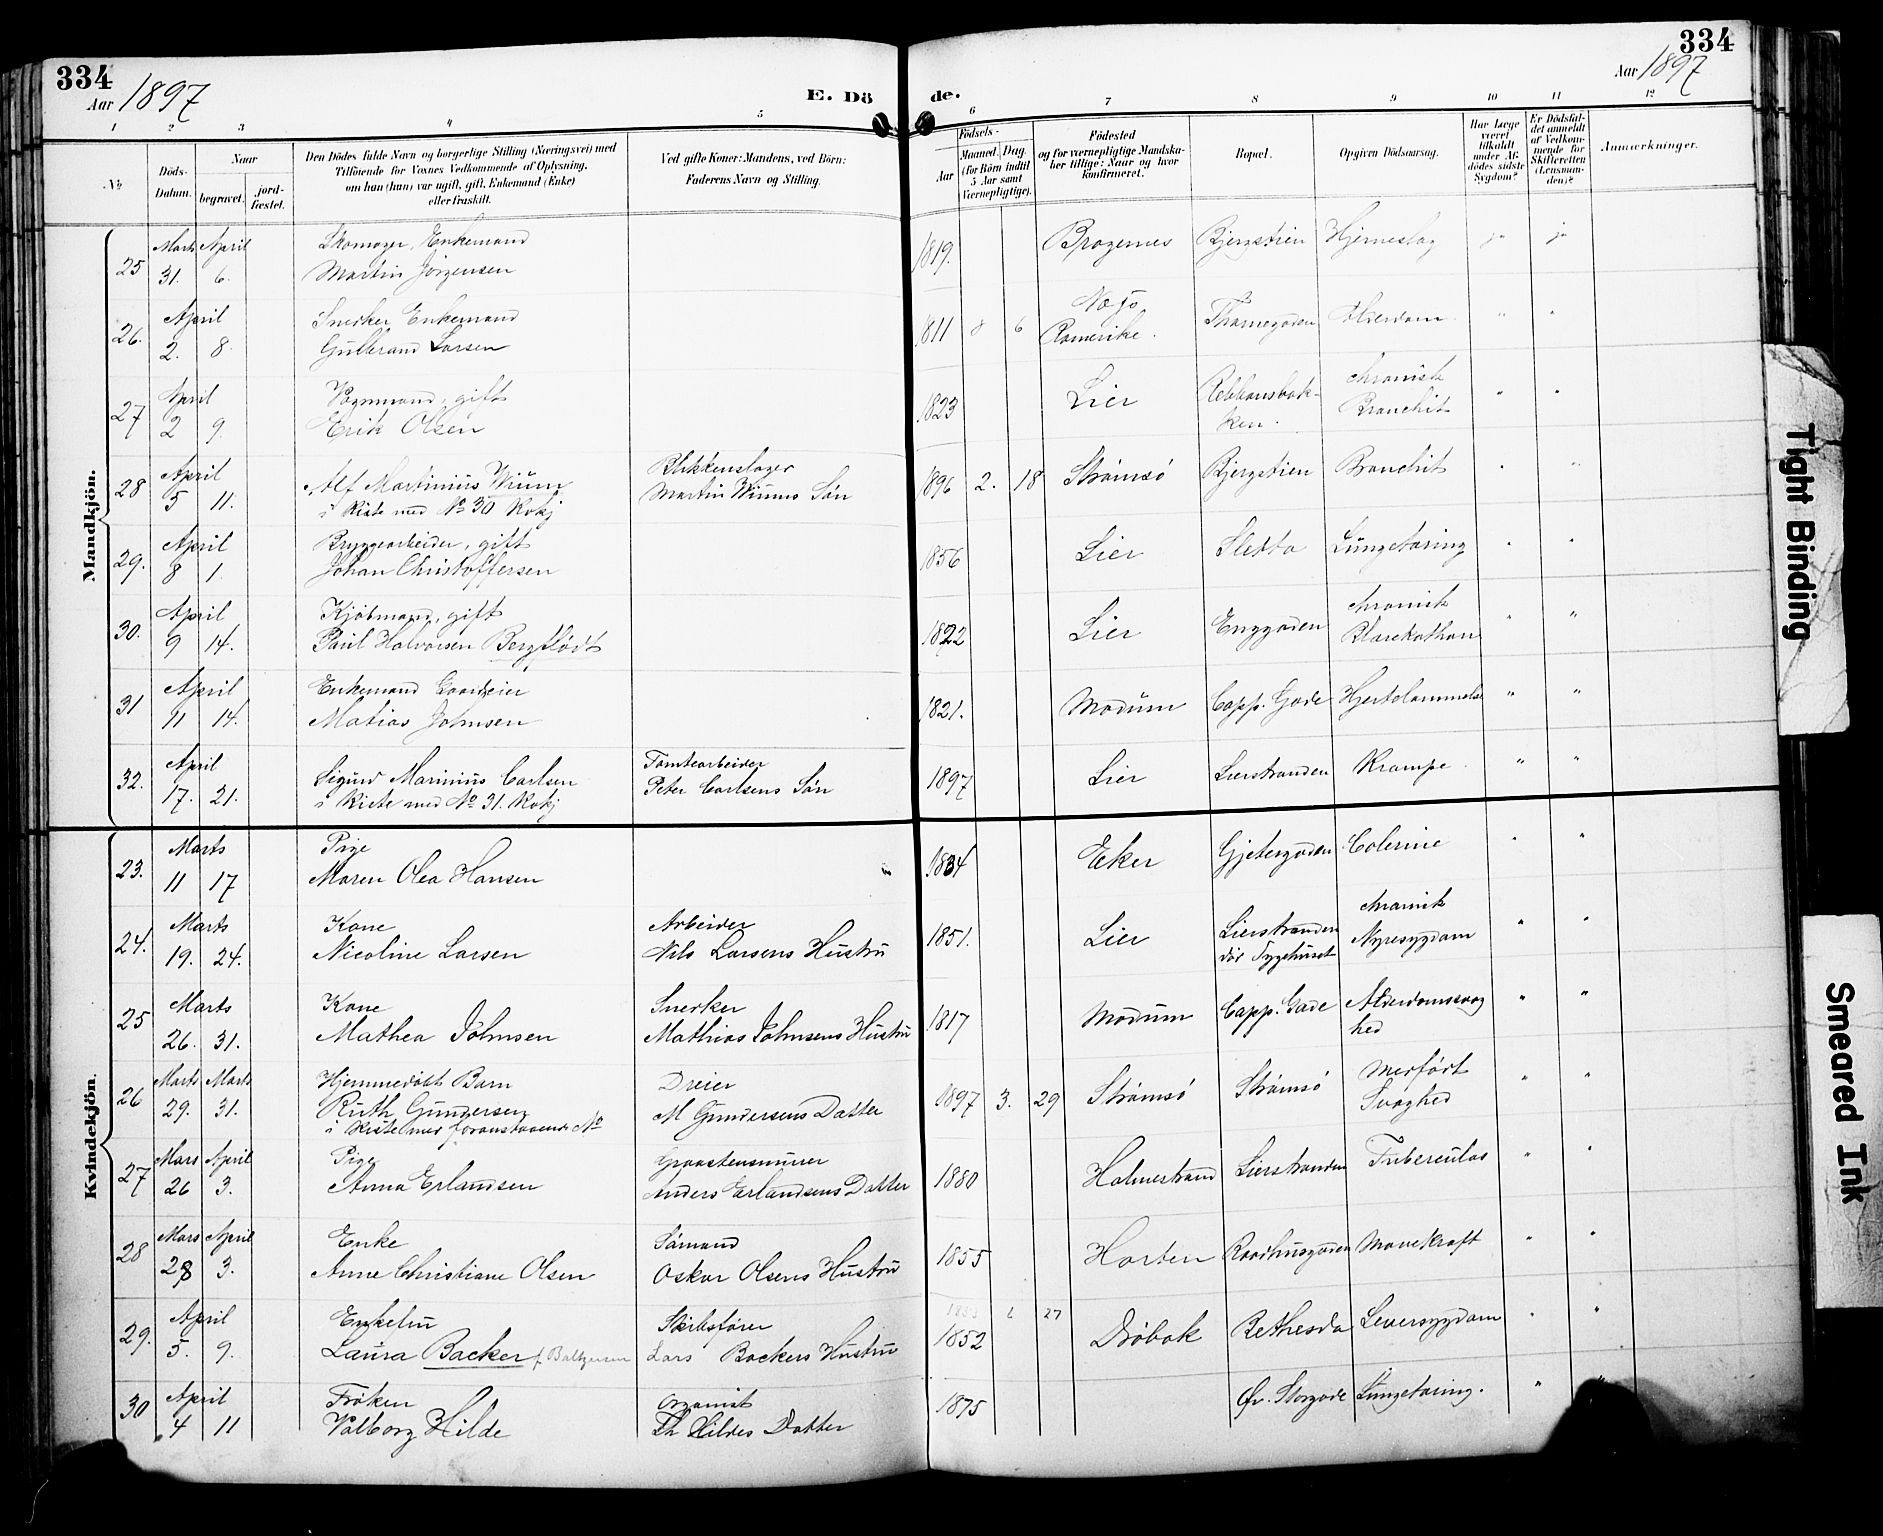 334
334
Aar 1897
Aar 1897
E. Döde.
1 2 3 4 5 6 7 8 9 10 11 12
№
Döds-Datum.
Naar
begravet.
jord-fæstet.
Den Dödes fulde Navn og borgerlige Stilling (Næringsvei) med
Tilföiende for Voxnes Vedkommende af Oplysning,
om han (hun) var ugift, gift, Enkemand (Enke)
eller fraskilt.
Ved gifte Koner: Mandens, ved Börn:
Faderens Navn og Stilling.
Födsels-
Aar
Maaned. Dag.
(for Börn indtil
5 Aar samt
Værnepligtige).
Födested
og for værnepligtige Mandska-
ber tillige: Naar og hvor
konfirmeret.
Bopæl.
Opgiven Dödsaarsag.
Har Læge
været
tilkaldt
under Af-
dödes sidste
Sygdom?
Er Dödsfal-
det anmeldt
af Vedkom-
mende for
Skifteretten
(Lensman-
den)?
Anmærkninger.
Mandkjön.
25 Marts 31. April 6. Skomager, Enkemand
Martin Jörgensen 1819. Bragernes Bjergstien Hjerneslag ja ja
26. April 2. 8. Snedker Enkemand
Gulbrand Larsen 1811 8 6 Romerike. Alderdom " "
27 April 2 9. Vognmand, gift
Erik Olsen 1823 Lier Rebbansbak-
ken. chronisk
Bronchit " "
28 April 5 11. Alf Martinius Wium
i Kiste med No 30 Kvkj Blikkenslager
Martin Wiums Sön 1896 2. 18 Strömsö Bjergstien Bronchit " "
29. April 8 1 Bryggearbeider, gift
Johan Christoffersen 1856 Lier Sletta Lungetæring " "
30. April 9 14. Kjöbmand, gift
Paul Halvorsen Bergflödt 1822 Lier Enggaden chronisk
Blærekathar " "
31 April 11 14. Enkemand Gaardeier
Matias Johnsen 1821. Modum Capp. Gade Hjertelammelse " "
32. April 17. 21. Sigurd Marinius Carlsen
i Kiste med No 31. Kvkj Tomtearbeider
Peter Carlsens Sön 1897 Lier Lierstranden Krampe " "
Kvindekjön.
23. Marts 11 17 Pige
Maren Olea Hansen 1834 Eker Gjetergaden Colerine " "
24. Marts 19. 24. Kone
Nicoline Larsen Arbeider
Nils Larsens Hustru 1851. Lier Lierstranden
död Sygehuset chronisk
Nyresygdom " "
25 Marts 26. 31. Kone
Mathea Johnsen Snedker
Mathias Johnsens Hustru 1817 Modum Capp. Gade Alderdomssvag
hed " "
26 Marts 29. Marts 31. Hjemmedöbt Barn
Ruth Gundersen
i Kiste med foranstaaende No Dreier
M Gundersens Datter 1897 3. 29 Strömsö Strömsö Medfödt
Svaghed " "
27 Mars 26 April 3. Pige
Anna Erlandsen Graastensmurer
Anders Erlandsens Datter 1880 Holmestrand Lierstranden Tuberculos " "
28 Mars 28 April 3. Enke
Anne Christiane Olsen Sömand
Oskar Olsens Hustru 1855 Horten Raadhusgaden Mavekræft " "
29. April 5. 9. Enkefru
Laura Backer f. Baltzersen Skibsförer
Lars Backers Hustru 1852 27 Dröbak Bethesda Leversygdom " "
30 April 4 11 Fröken
Valborg Hilde Organist
Th Hildes Datter 1875 Öv. Storgade Lungetæring. " "
Tight Binding
Smeared Ink